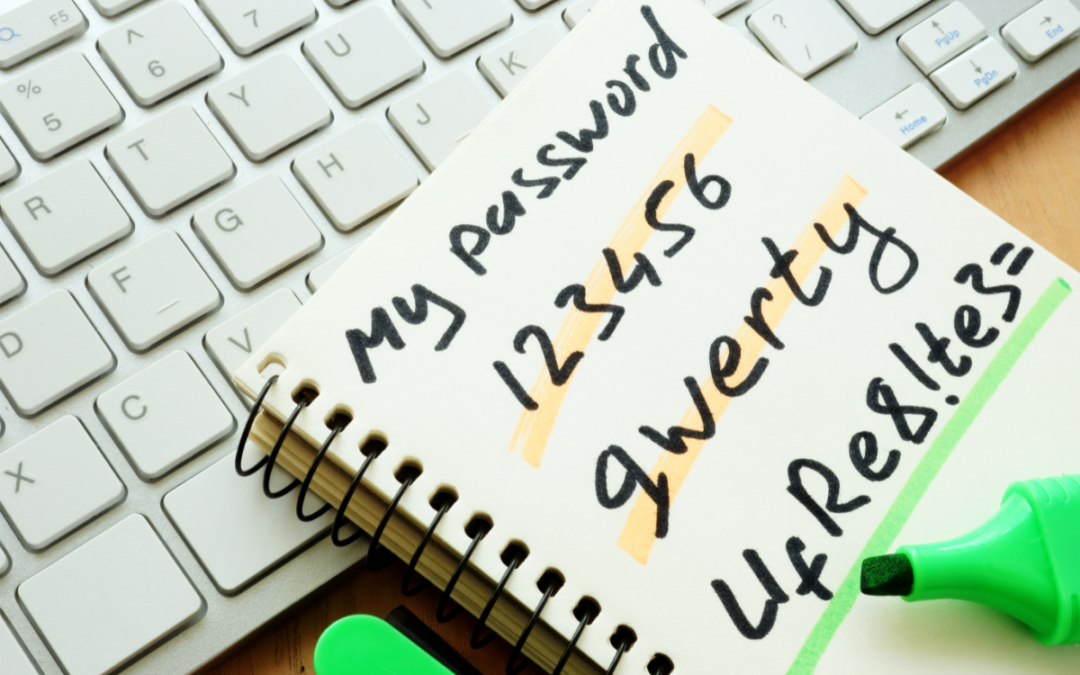 My password
123456
qwerty
UfRe8!te3=
F5
7
^
6
U
K
?
/
PgUp
PgDn
End
Home
%
5
Y
J
T
H
R
G
F
D
V
C
X